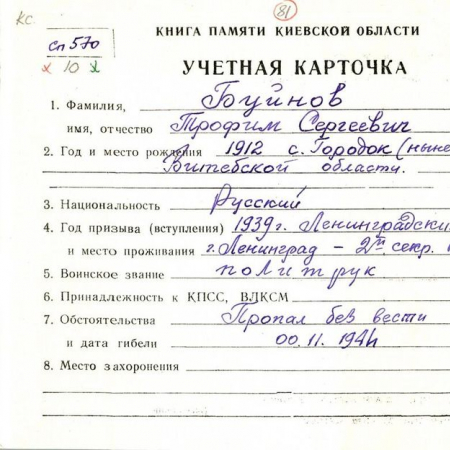 кс.
81
сп 570
х 10 х
КНИГА ПАМЯТИ КИЕВСКОЙ ОБЛАСТИ
УЧЕТНАЯ КАРТОЧКА
1. Фамилия, Буйнов
имя, отчество Трофим Сергеевич
2. Год и место рождения 1912 с. Городок (ныне
Витебской области.
3. Национальность Русский
4. Год призыва (вступления) 1939 г. Ленинградски
и место проживания г. Ленинград – 2й секр.
5. Воинское звание политрук
6. Принадлежность к КПСС, ВЛКСМ
7. Обстоятельства Пропал без вести
и дата гибели 00.11.1941
8. Место захоронения